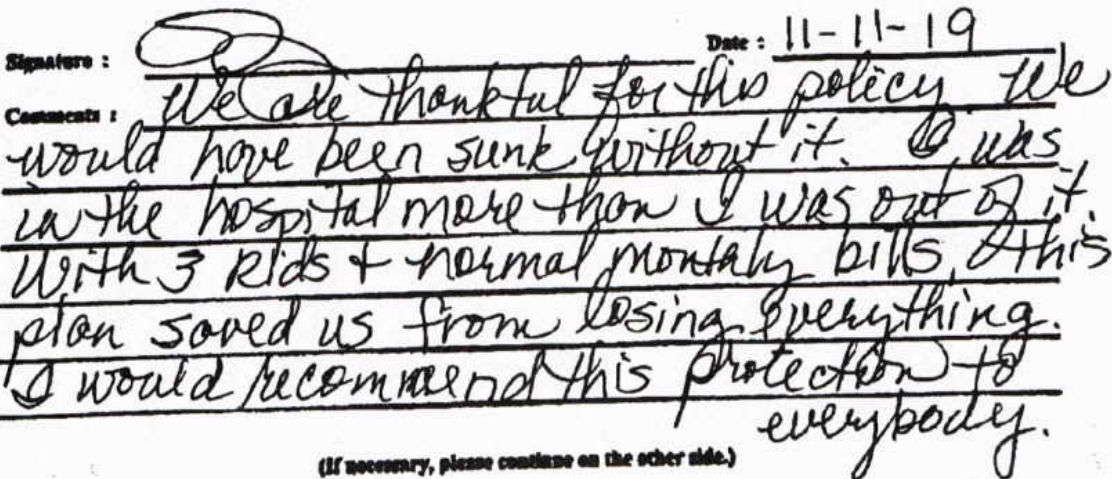 Signature : Date : 11-11-19
Comments : We are thankful for this policy. We
would have been sunk without it. I was
in the hospital more than I was out of it.
With 3 kids + normal monthly bills, this
plan saved us from losing everything.
I would recommend this protection to
everybody.
(If necessary, please continue on the other side.)